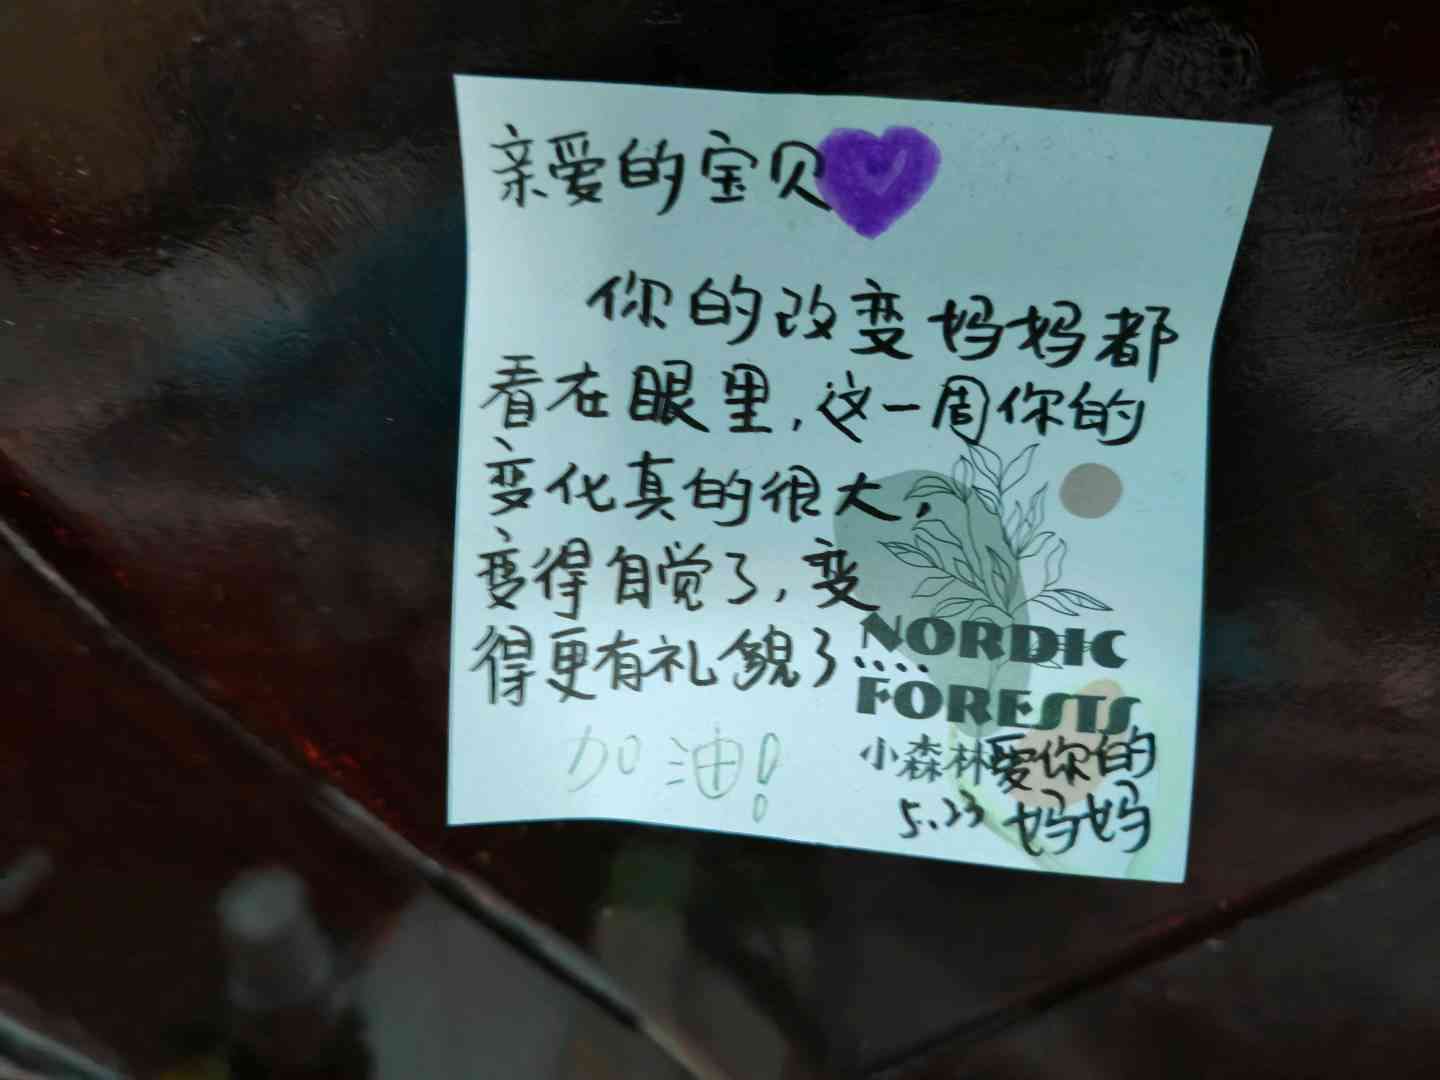 亲爱的宝贝
你的改变妈妈都
看在眼里，这一周你的
变化真的很大，
变得自觉了，变
得更有礼貌了....
加油！
NORDIC
FORESTS
小森林
爱你的
5.23 妈妈